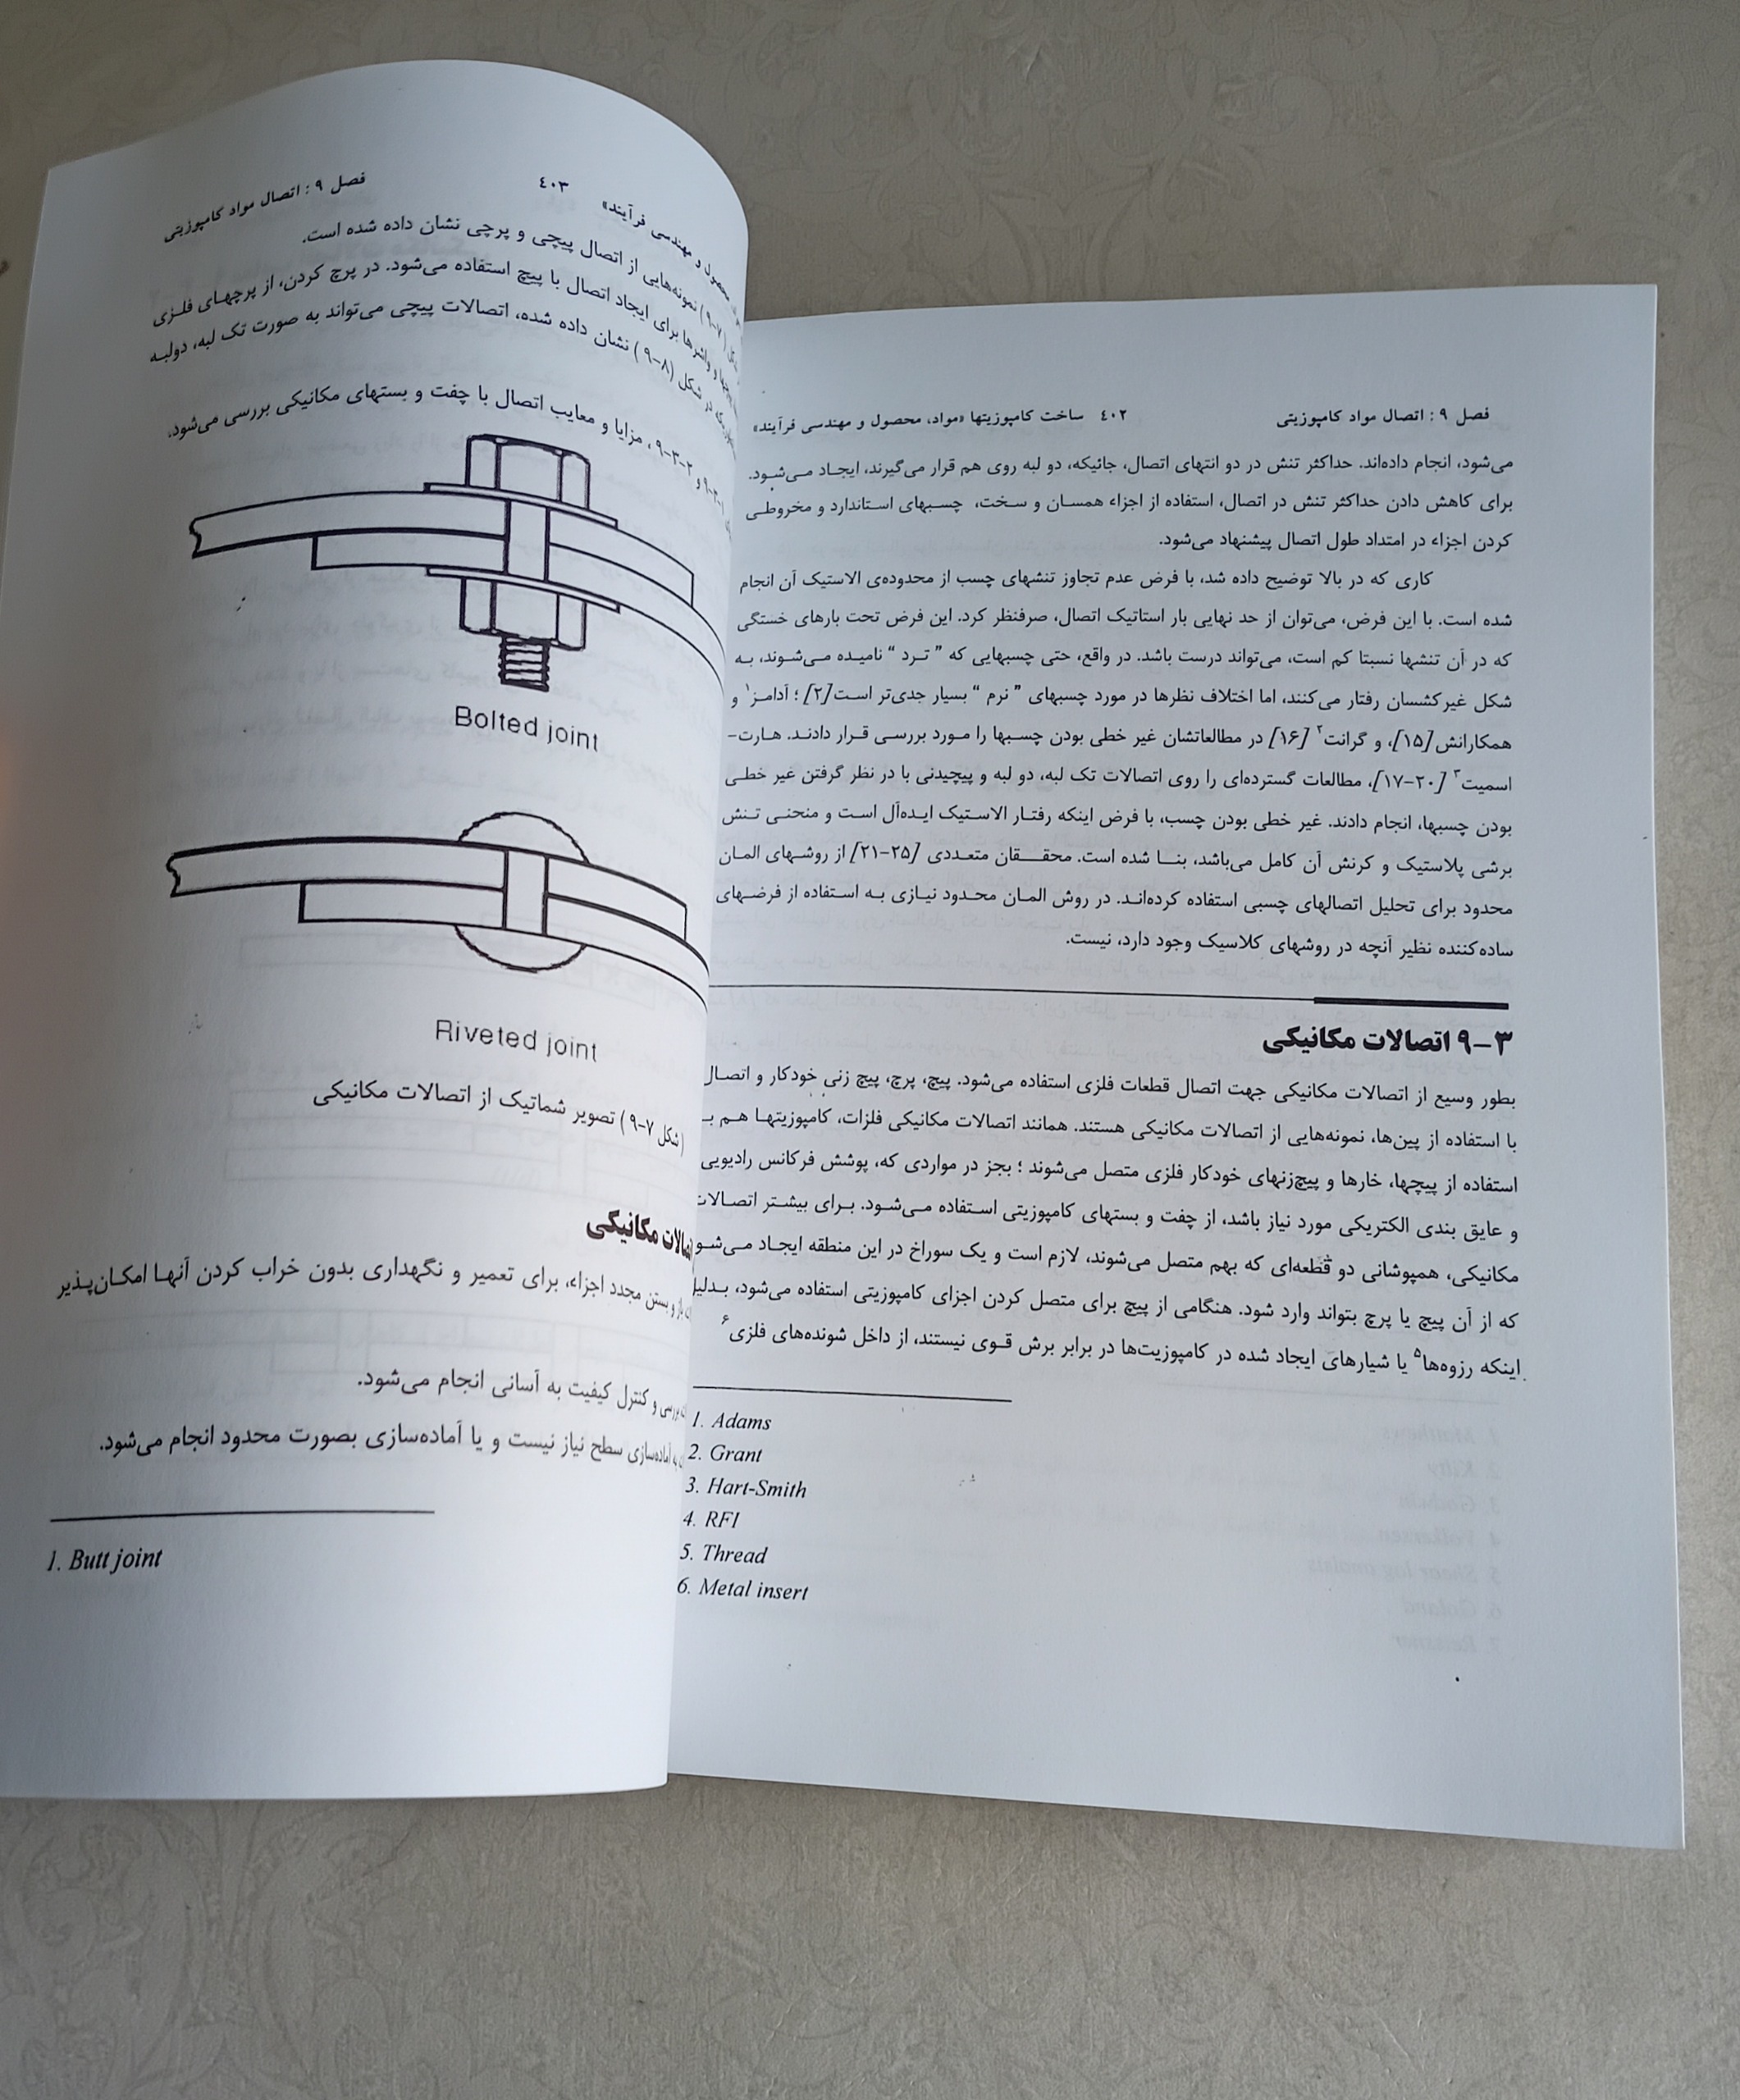 فصل ۹ : اتصال مواد کامپوزیتی ۴۰۲ ساخت کامپوزیتها «مواد، محصول و مهندسی فرآیند»
می‌شود، انجام داده‌اند. حداکثر تنش در دو انتهای اتصال، جائیکه، دو لبه روی هم قرار می‌گیرند، ایجاد می‌شود.
برای کاهش دادن حداکثر تنش در اتصال، استفاده از اجزاء همسان و سخت، چسبهای استاندارد و مخروطی
کردن اجزاء در امتداد طول اتصال پیشنهاد می‌شود.
کاری که در بالا توضیح داده شد، با فرض عدم تجاوز تنشهای چسب از محدوده‌ی الاستیک آن انجام
شده است. با این فرض، می‌توان از حد نهایی بار استاتیک اتصال، صرفنظر کرد. این فرض تحت بارهای خستگی
که در آن تنشها نسبتا کم است، می‌تواند درست باشد. در واقع، حتی چسبهایی که ” ترد “ نامیده می‌شوند، به
شکل غیرکشسان رفتار می‌کنند، اما اختلاف نظرها در مورد چسبهای ” نرم “ بسیار جدی‌تر است[۲] ؛ آدامز۱ و
همکارانش[۱۵]، و گرانت۲ [۱۶] در مطالعاتشان غیر خطی بودن چسبها را مورد بررسی قرار دادند. هارت-
اسمیت۳ [۲۰-۱۷]، مطالعات گسترده‌ای را روی اتصالات تک لبه، دو لبه و پیچیدنی با در نظر گرفتن غیر خطی
بودن چسبها، انجام دادند. غیر خطی بودن چسب، با فرض اینکه رفتار الاستیک ایده‌آل است و منحنی تنش
برشی پلاستیک و کرنش آن کامل می‌باشد، بنا شده است. محققان متعددی [۲۵-۲۱] از روشهای المان
محدود برای تحلیل اتصالهای چسبی استفاده کرده‌اند. در روش المان محدود نیازی به استفاده از فرضهای
ساده‌کننده نظیر آنچه در روشهای کلاسیک وجود دارد، نیست.
۹-۳ اتصالات مکانیکی
بطور وسیع از اتصالات مکانیکی جهت اتصال قطعات فلزی استفاده می‌شود. پیچ، پرچ، پیچ زنی خودکار و اتصال
با استفاده از پین‌ها، نمونه‌هایی از اتصالات مکانیکی هستند. همانند اتصالات مکانیکی فلزات، کامپوزیتها هم
استفاده از پیچها، خارها و پیچ‌زنهای خودکار فلزی متصل می‌شوند ؛ بجز در مواردی که، پوشش فرکانس رادیویی
و عایق بندی الکتریکی مورد نیاز باشد، از چفت و بستهای کامپوزیتی استفاده می‌شود. برای بیشتر اتصالات
مکانیکی، همپوشانی دو قطعه‌ای که بهم متصل می‌شوند، لازم است و یک سوراخ در این منطقه ایجاد
که از آن پیچ یا پرچ بتواند وارد شود. هنگامی از پیچ برای متصل کردن اجزای کامپوزیتی استفاده می‌شود، بدلیل
اینکه رزوه‌ها۵ یا شیارهای ایجاد شده در کامپوزیت‌ها در برابر برش قوی نیستند، از داخل شونده‌های فلزی۶
1. Adams
2. Grant
3. Hart-Smith
4. RFI
5. Thread
6. Metal insert
محصول و مهندسی فرآیند» ۴۰۳ فصل ۹ : اتصال مواد کامپوزیتی
(۹-۷) نمونه‌هایی از اتصال پیچی و پرچی نشان داده شده است.
و واشرها برای ایجاد اتصال با پیچ استفاده می‌شود. در پرچ کردن، از پرچهای فلزی
که در شکل (۹-۸) نشان داده شده، اتصالات پیچی می‌تواند به صورت تک لبه، دولبه
و ۹-۳-۲، مزایا و معایب اتصال با چفت و بستهای مکانیکی بررسی می‌شود.
Bolted joint
Riveted joint
(شکل ۹-۷) تصویر شماتیک از اتصالات مکانیکی
اتصالات مکانیکی
باز و بستن مجدد اجزاء، برای تعمیر و نگهداری بدون خراب کردن آنها امکان‌پذیر
بررسی و کنترل کیفیت به آسانی انجام می‌شود.
به آماده‌سازی سطح نیاز نیست و یا آماده‌سازی بصورت محدود انجام می‌شود.
1. Butt joint